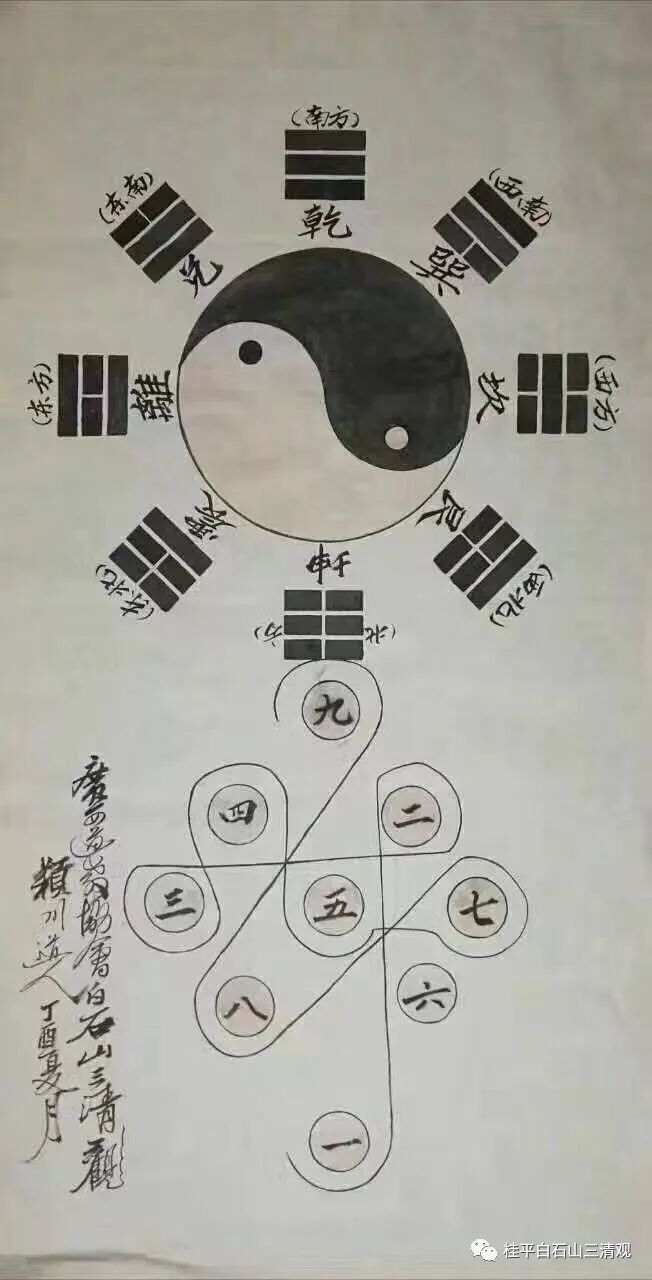 (南方)
乾
(东南)
兑
(西南)
巽
(东方)
離
坎
(西方)
震
(东北)
艮
(西北)
(北方)
九
四
二
三
五
七
八
六
一
廣西道教協會白石山三清觀
川道人
丁酉夏月
桂平白石山三清观